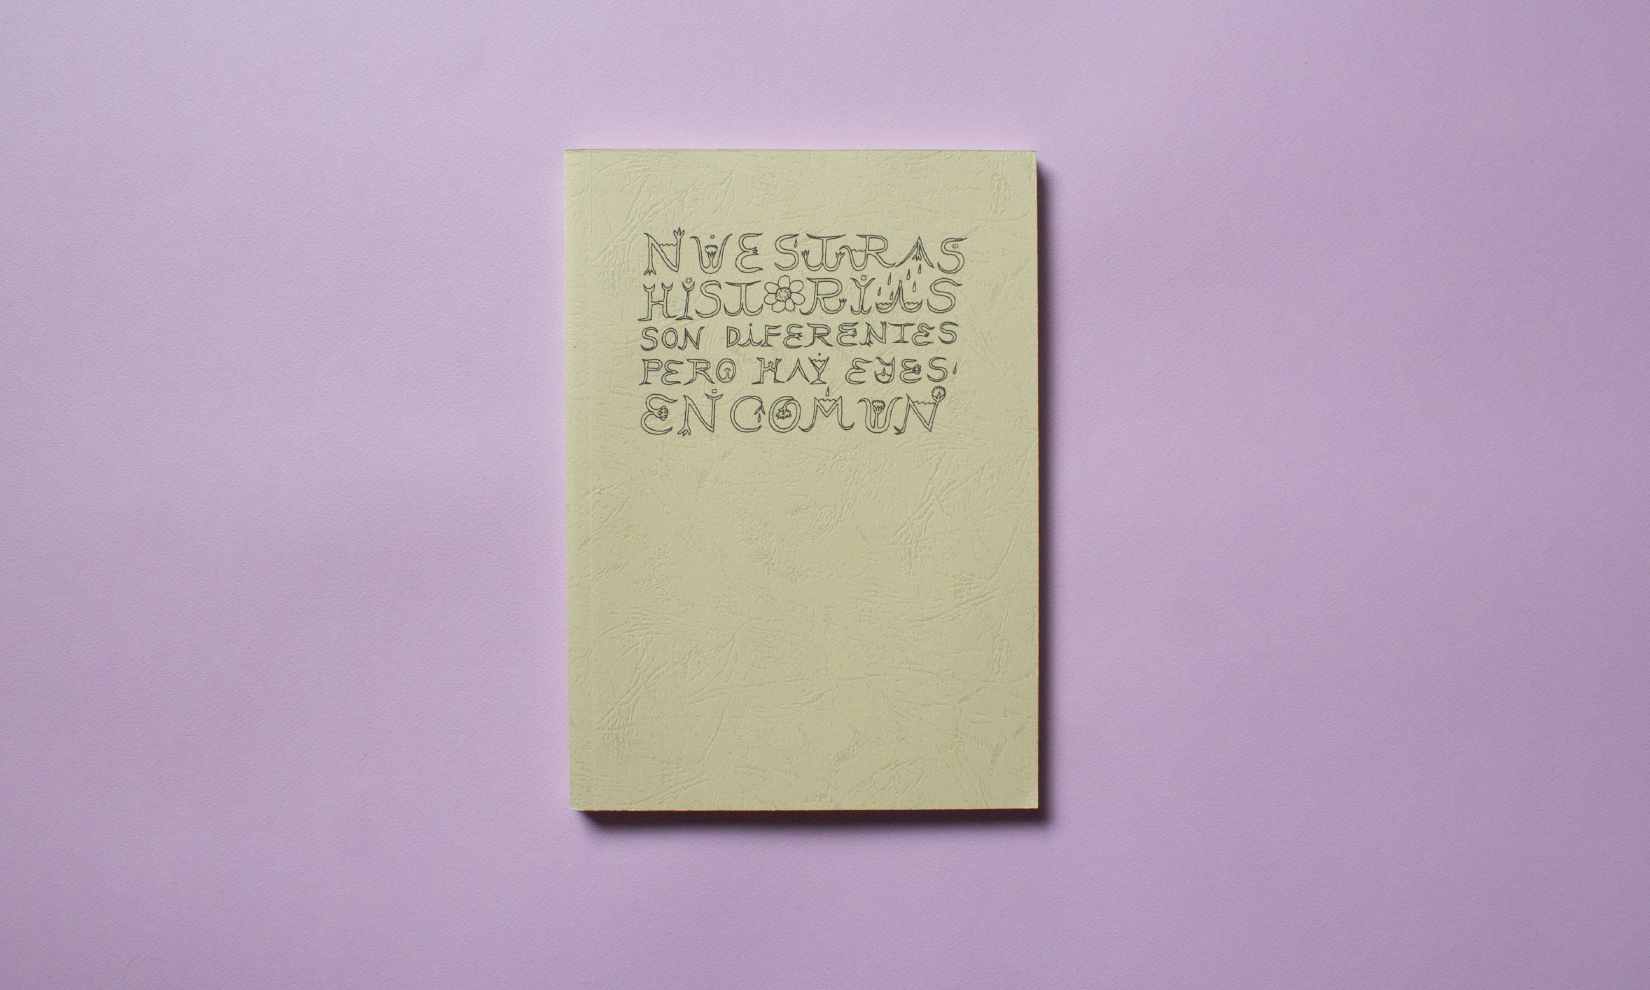 NUESTRAS
HISTORIAS
SON DiFERENTES
PERO HAY EJES
EN COMUN